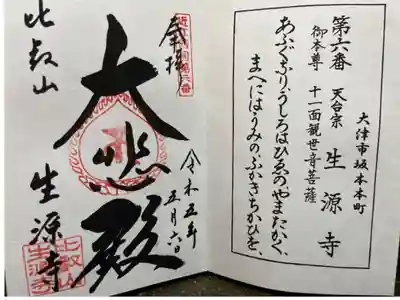 大津市坂本本町
第六番 天台宗 生源寺
御本尊 十一面観世音菩薩
うしろはひゑの、やまたかく、
まへにはうみのふかきちかひを、
奉拝
令和五年
五月六日
大悲殿
比叡山 生源寺
比叡山
生源寺